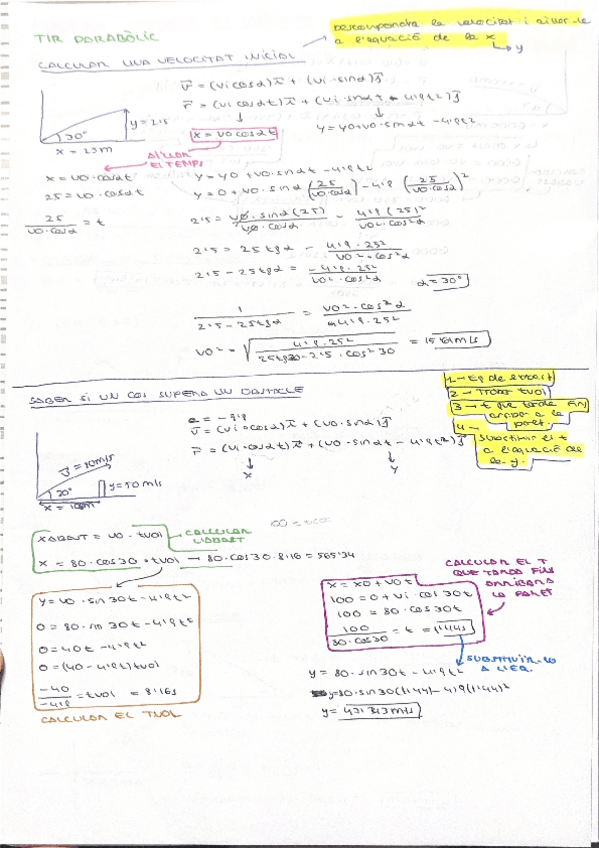 TIR PARABÒLIC
Descompondre la velocitat i aïllar-la
a l'equació de la x
y
CALCULAR UNA VELOCITAT INICIAL
v = (vi cosα)i + (vi · sinα)j
r = (vi cosαt)i + (vi · sinαt - 4'9t²)j
30°
y = 2'5
x = 25m
x = v0 cosαt
y = y0 + v0 · sinαt - 4'9t²
AÏLLAR
EL TEMPS
x = v0 · cosαt
y = y0 + v0 · sinαt - 4'9t²
25 = v0 · cosαt
y = 0 + v0 · sinα (25/v0·cosα) - 4'9 (25/v0·cosα)²
25/v0·cosα = t
2'5 = v0 · sinα(25)/v0 · cosα - 4'9(25)²/v0² · cos²α
2'5 = 25 tgα - 4'9 · 25²/v0² · cos²α
2'5 - 25tgα = -4'9 · 25²/v0² · cos²α
α = 30°
1/2'5 - 25tgα = v0² · cos²α/-4'9 · 25²
v0² = √4'9 · 25²/25tg30 - 2'5 · cos²30 =
SABER SI UN COS SUPERA UN OBSTACLE
1 → Eq de
2 → Trobar tvol
3 → t que tarda fins
arribar a la
paret.
4 →
Substituir el t
a l'equació de
la y.
a = -9'8
v = (vi · cosα)i + (v0 · sinα)j
r = (vi · cosαt)i + (v0 · sinαt - 4'9t²)j
x
y
20°
y = 50 m/s
x = 100m
XABAST = v0 · tvol
CALCULAR
L'ABAST
x = 80 · cos30 · tvol → 80 · cos30 · 8'16 = 565'34
y = v0 · sin30t - 4'9t²
0 = 80 · sin30t - 4'9t²
0 = 40t - 4'9t²
0 = (40 - 4'9t)tvol
-40/-4'9 = tvol = 8'16s
CALCULAR EL TVOL
CALCULAR EL T
QUE TARDA FINS
ARRIBAR A
LA PARET
x = x0 + v0t
100 = 0 + vi · cos30t
100 = 80 · cos30t
100/80·cos30 = t = 1'44s
SUBSTITUIR-LO
A L'EQ.
y = 80 · sin30t - 4'9t²
y = 80 · sin30(1'44) - 4'9(1'44)²